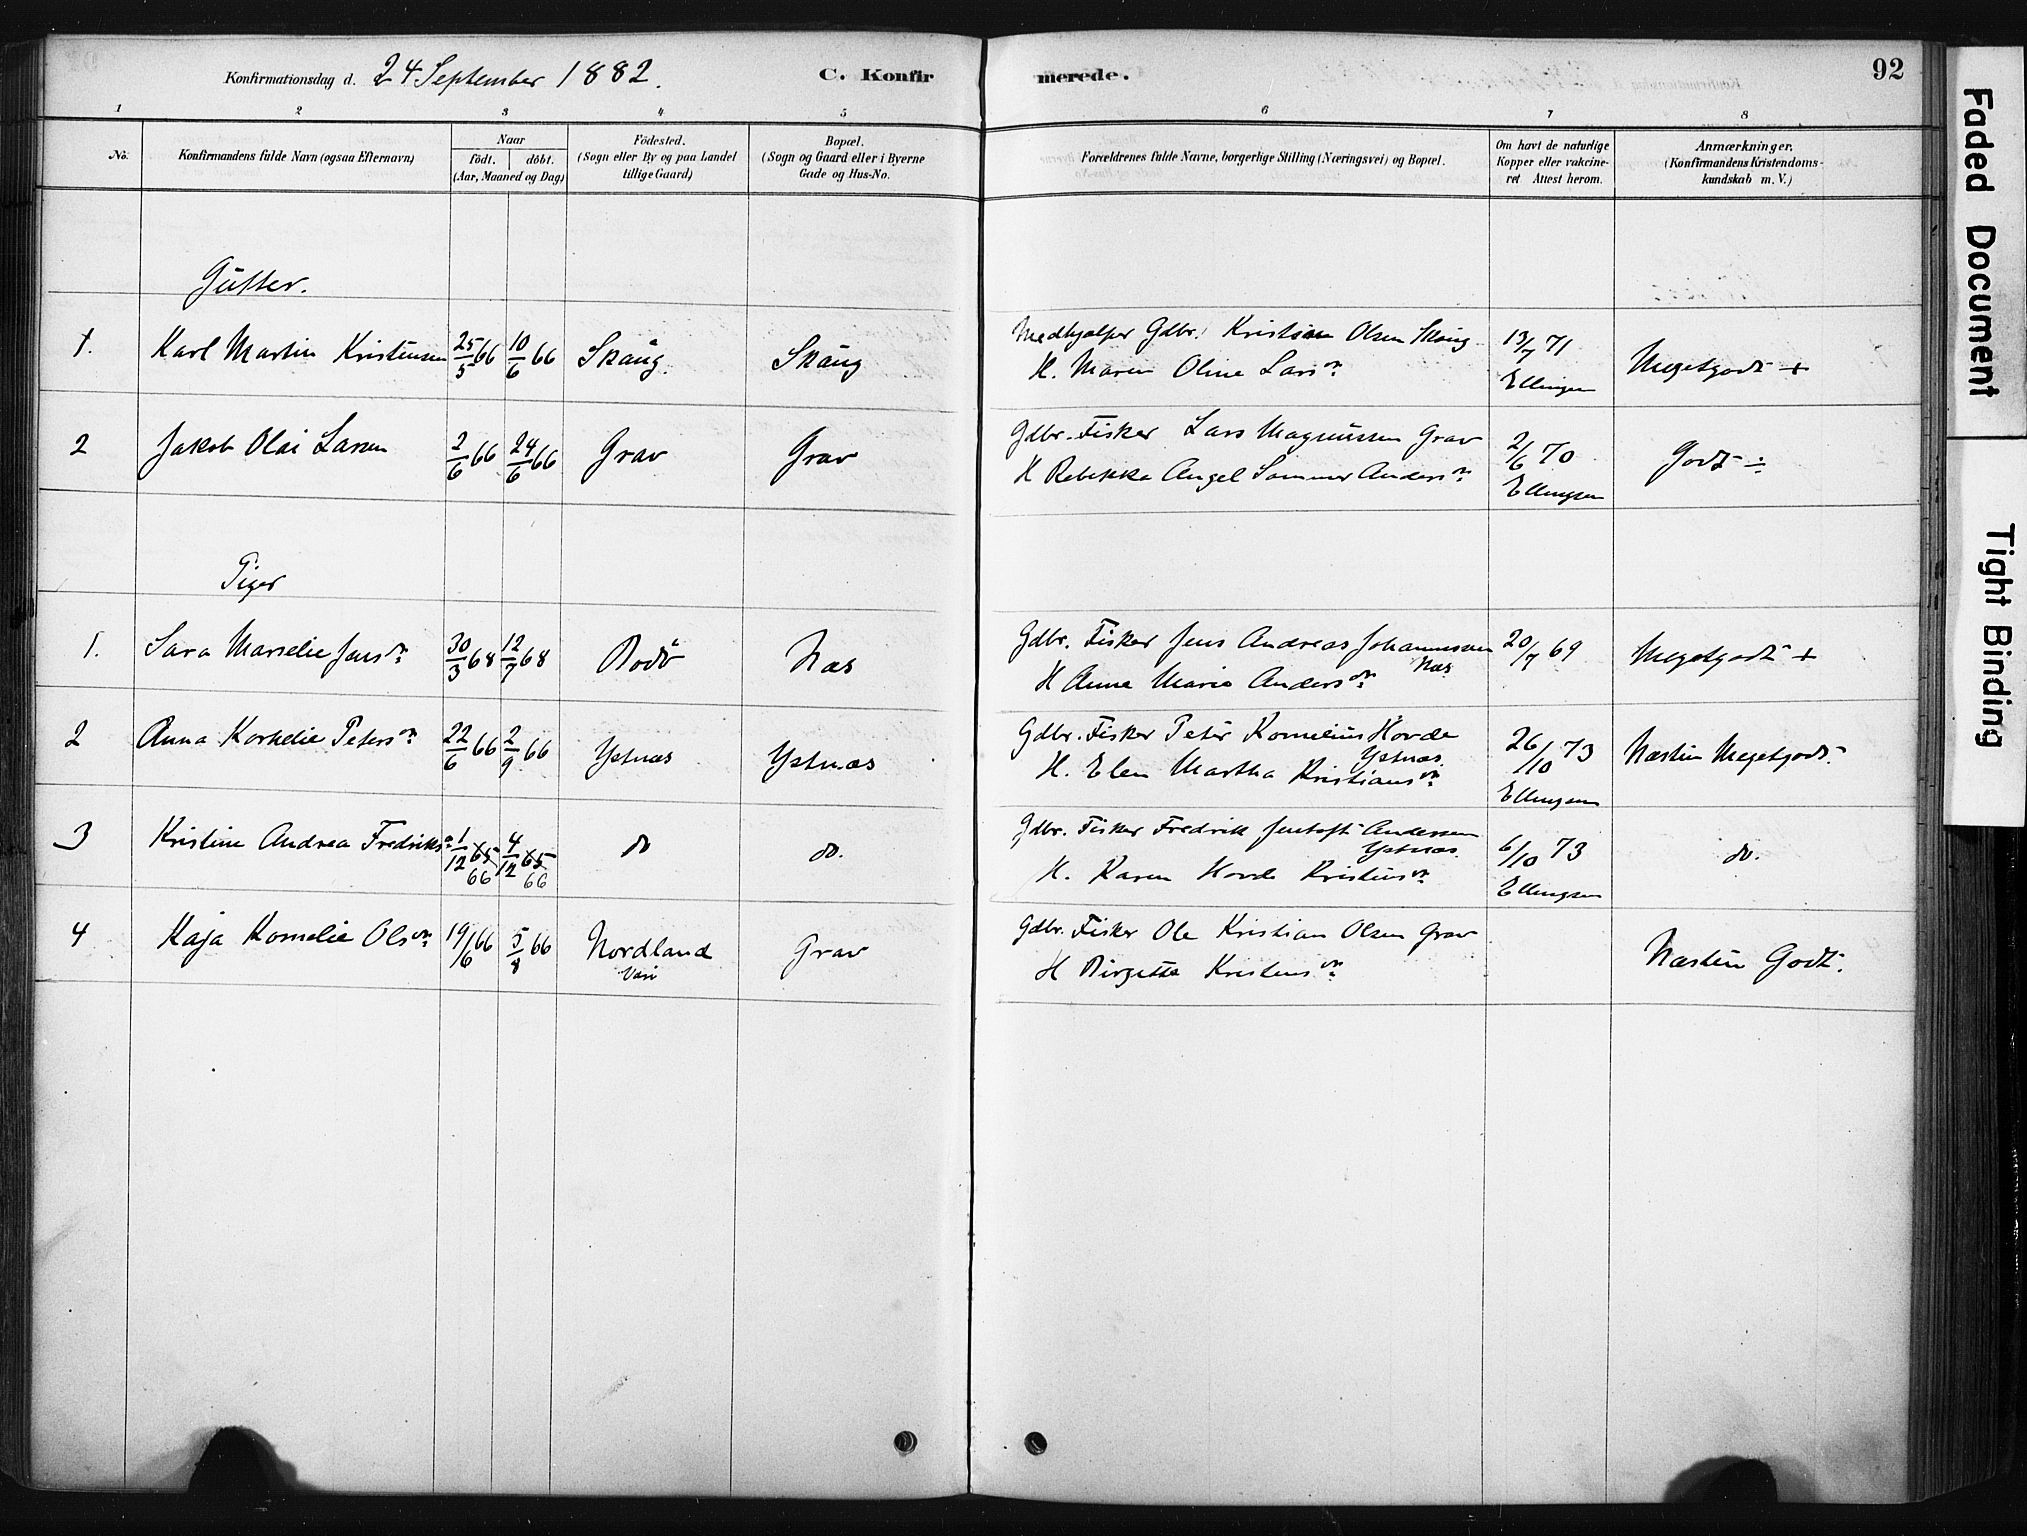 Konfirmationsdag d. 24 September 1882. C. Konfirmerede. 92
1 2 3 4 5 6 7 8
No. Konfirmandens fulde Navn (ogsaa Efternavn) Naar födt. döbt. (Aar, Maaned og Dag) Födested. (Sogn eller By og paa Landet tillige Gaard) Bopæl. (Sogn og Gaard eller i Byerne Gade og Hus-No. Forældrenes fulde Navne, borgerlige Stilling (Næringsvei) og Bopæl. Om havt de naturlige Kopper eller vakcineret Attest herom. Anmærkninger. (Konfirmandens Kristendomskundskab m. V.)
Gutter.
1. Karl Martin Kristensen 25/5 66 10/6 66 Skaug. Skaug Medhjælper Gdbr. Kristian Olsen Skaug 13/7 71 Megetgodt +
H. Maren Oline Larsn. Ellingsen
2 Jakob Olai Larsen 2/6 66 24/6 66 Grav Grav Gdbr. Fisker Lars Magnussen Grav 2/6 70 Godt ÷
H Rebekka Angel Sommer Andersn. Ellingsen
Piger
1. Sara Marselie Jensn. 30/3 68 12/7 68 Bodö Næs Gdbr. Fisker Jens Andreas Johannessen Næs 20/7 69 Megetgodt +
H Anna Maria Andersn.
2 Anna Kornelie Petersn. 22/6 66 2/9 66 Ystnæs Ystnæs Gdbr. Fisker Peter Kornelius Hovde Ystnæs. 26/10 73 Næsten Megetgodt.
H. Elen Martha Kristiansn. Ellingsen
3 Kristine Andrea Fredriksn. 1/12 65 66 4/12 65 66 do do. Gdbr. Fisker Fredrik Jentoft Andersen Ystnæs. 6/10 73 do.
H. Karen Hovde Kristensn. Ellingsen
4 Kaja Kornelie Olsn. 19/6 66 5/8 66 Nordland Grav Gdbr. Fisker Ole Kristian Olsen Grav Næsten Godt.
H Birgitte Kristensn.
Faded Document
Tight Binding